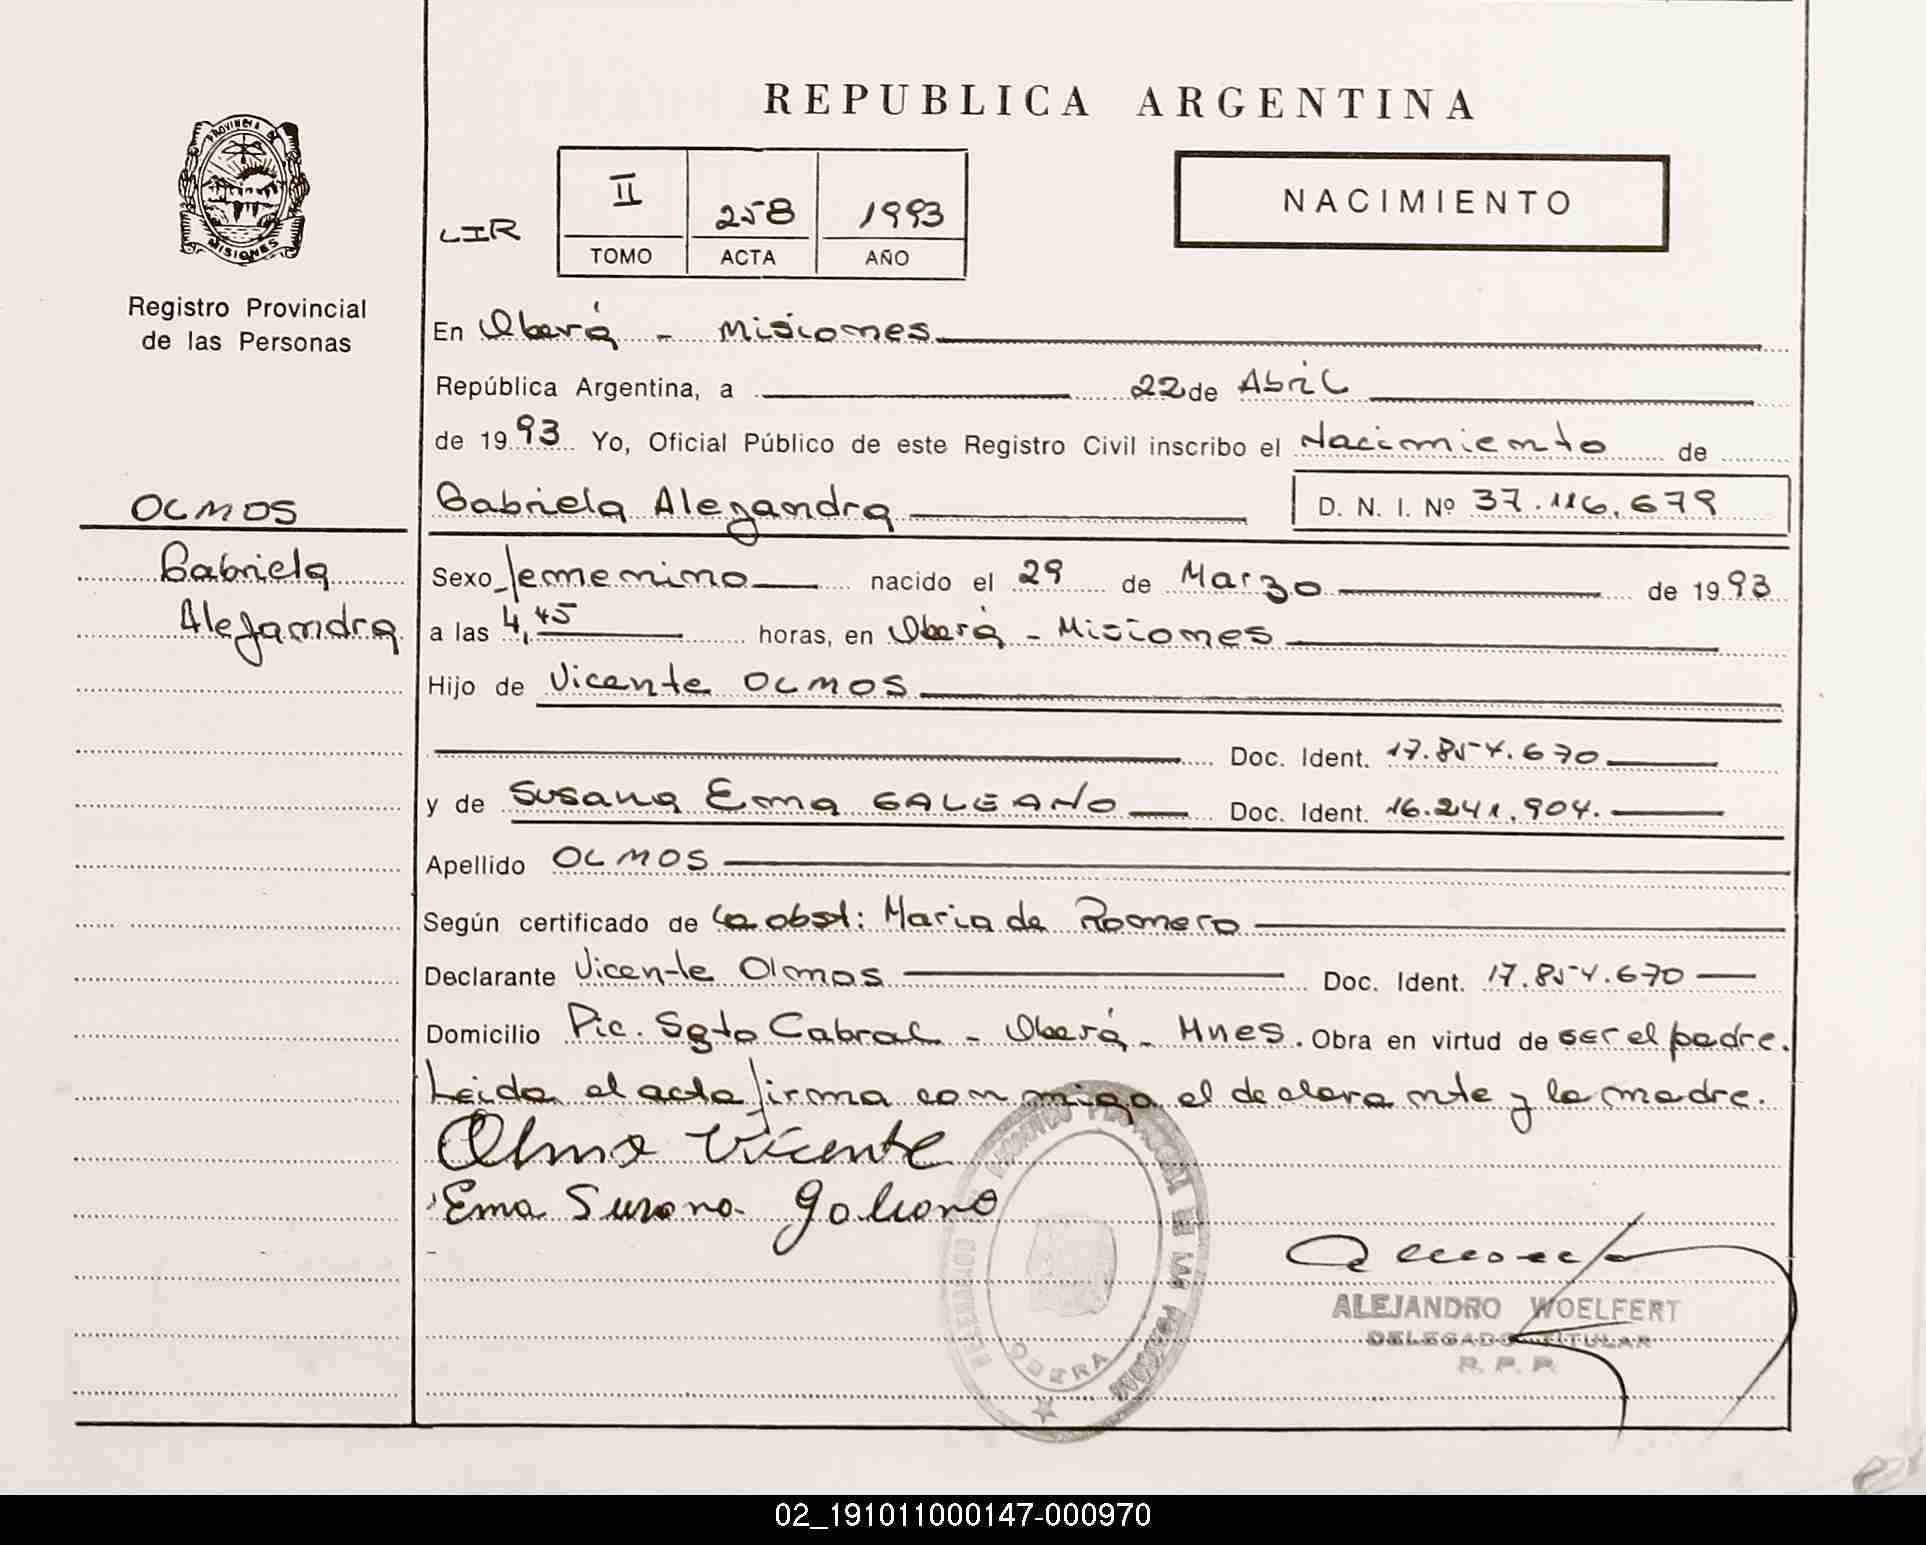 REPUBLICA ARGENTINA
PROVINCIA DE
MISIONES
Registro Provincial
de las Personas
LIR
II 258 1993
TOMO ACTA AÑO
NACIMIENTO
En Oberá - Misiones
República Argentina, a 22 de Abril
de 1993 Yo, Oficial Público de este Registro Civil inscribo el Nacimiento de
OLMOS
Gabriela Alejandra
Gabriela Alejandra D. N. I. Nº 37.116.679
Sexo femenino nacido el 29 de Marzo de 1993
a las 4,45 horas, en Oberá - Misiones
Hijo de Vicente OLMOS
Doc. Ident. 17.854.670
y de Susana Ema GALEANO Doc. Ident. 16.241.904.
Apellido OLMOS
Según certificado de la obst: Maria de Romero
Declarante Vicente Olmos Doc. Ident. 17.854.670
Domicilio Pic. Sgto Cabral - Oberá - Mnes. Obra en virtud de ser el padre.
Leida el acta firma con migo el declarante y la madre.
Olmo Vicente
Ema Susana Galeano
OBERA
ALEJANDRO WOELFERT
DELEGADO TITULAR
R. P. P.
02_191011000147-000970